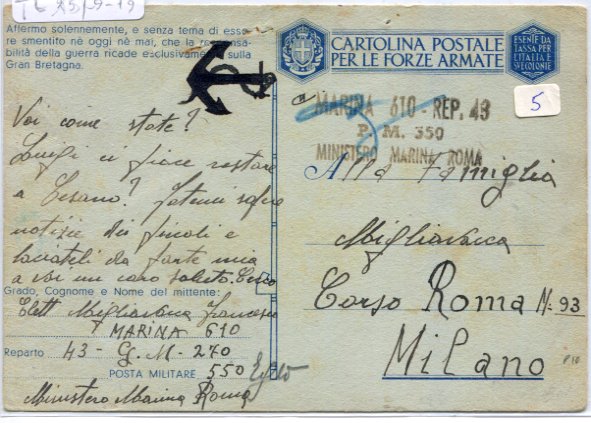 Affermo solennemente, e senza tema di esse-
re smentito nè oggi nè mai, che la responsa-
bilità della guerra ricade esclusivamente sulla
Gran Bretagna.
Voi come state?
Luigi ci piace restare
a Cesano? Fatemi sapere
notizie dei piccoli e
baciateli da parte mia
a voi un caro saluto. Cecco
Grado, Cognome e Nome del mittente:
Elett Migliavacca Francesco
MARINA 610
Reparto 43 - G. M - 270
POSTA MILITARE 550
Ministero Marina Roma
CARTOLINA POSTALE
PER LE FORZE ARMATE
ESENTE DA
TASSA PER
L'ITALIA E
SUE COLONIE
5
MARINA 610 - REP. 43
P. M. 350
MINISTERO MARINA ROMA
Alla Famiglia
Migliavacca
Corso Roma N. 93
Milano